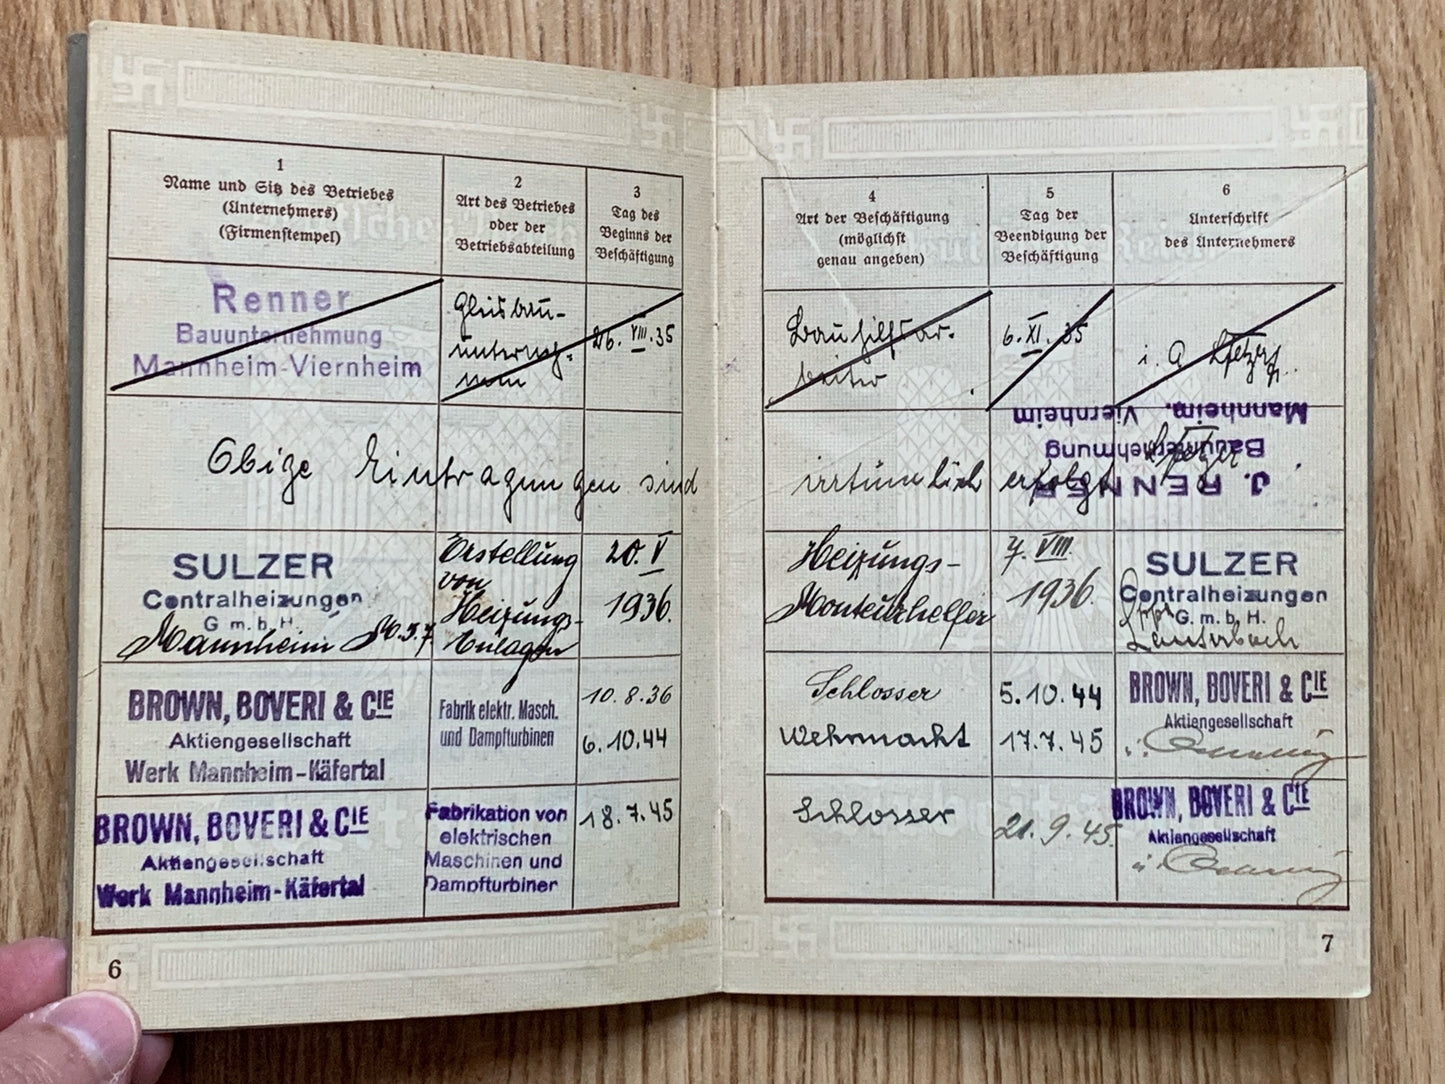 1
Name und Sitz des Betriebes
(Unternehmers)
(Firmenstempel)
2
Art des Betriebes
oder der
Betriebsabteilung
3
Tag des
Beginns der
Beschäftigung
Renner
Bauunternehmung
Mannheim-Viernheim
Gleisbau-
unterneh-
men
26. VIII. 35
Obige Eintragungen sind
SULZER
Centralheizungen
G. m. b. H.
Mannheim
Erstellung
von
Heizungs-
Anlagen
20. V
1936.
BROWN, BOVERI & CIE
Aktiengesellschaft
Werk Mannheim-Käfertal
Fabrik elektr. Masch.
und Dampfturbinen
10.8.36
6.10.44
BROWN, BOVERI & CIE
Aktiengesellschaft
Werk Mannheim-Käfertal
Fabrikation von
elektrischen
Maschinen und
Dampfturbinen
18.7.45
6
4
Art der Beschäftigung
(möglichst
genau angeben)
5
Tag der
Beendigung der
Beschäftigung
6
Unterschrift
des Unternehmers
Bauhilfsar-
beiter
6. XI. 35
i. A.
irrtümlich erfolgt
J. RENNER
Bauunternehmung
Mannheim. Viernheim
Heizungs-
Monteurhelfer
7. VIII.
1936.
SULZER
Centralheizungen
G. m. b. H.
Lauterbach
Schlosser
Wehrmacht
5.10.44
17.7.45
BROWN, BOVERI & CIE
Aktiengesellschaft
Schlosser
21.9.45.
BROWN, BOVERI & CIE
Aktiengesellschaft
7